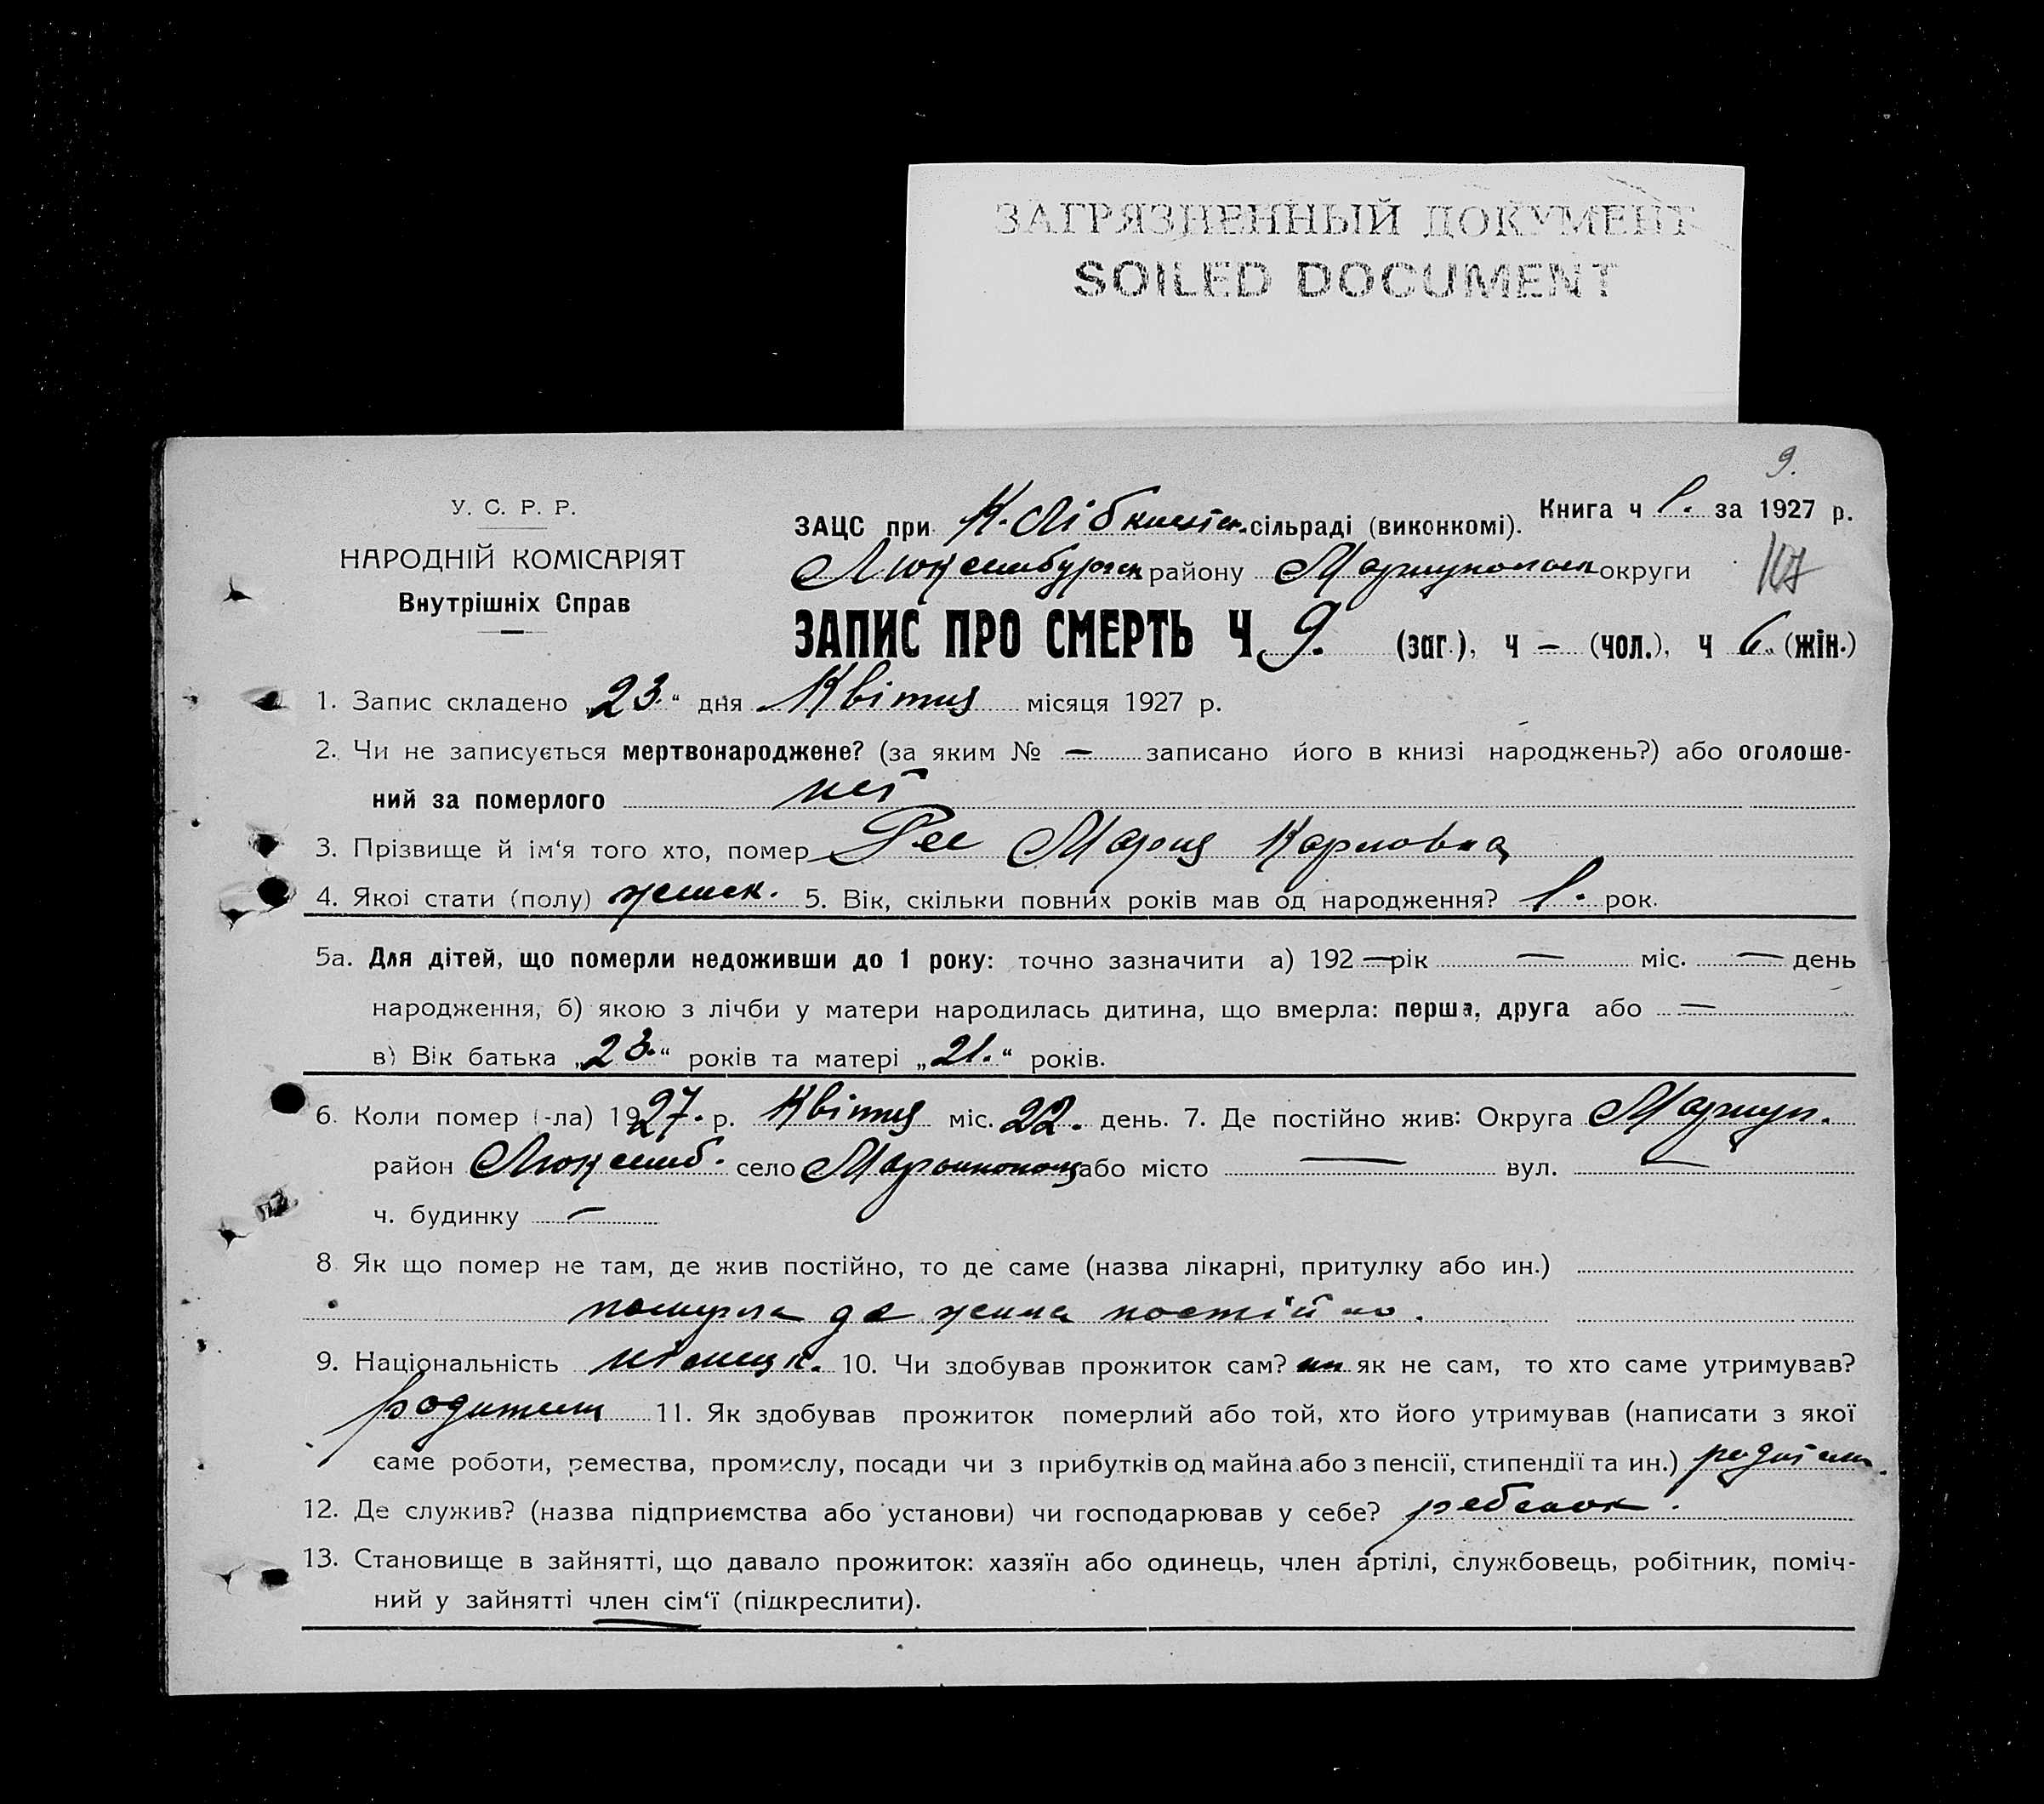 ЗАГРЯЗНЕННЫЙ ДОКУМЕНТ
SOILED DOCUMENT
9.
У. С. Р. Р.
НАРОДНІЙ КОМІСАРІЯТ
Внутрішніх Справ
Книга ч 1. за 1927 р.
ЗАЦС при К. Лібкнехтск. сільраді (виконкомі).
Люксембургск району Мариупольск округи
ЗАПИС ПРО СМЕРТЬ Ч 9. (заг.), ч — (чол.), ч 6. (жін.)
1. Запис складено „23.“ дня Квітня місяця 1927 р.
2. Чи не записується мертвонароджене? (за яким № — записано його в книзі народжень?) або оголоше-
ний за померлого ні
3. Прізвище й ім‘я того хто, помер Рее Мария Карловна
4. Якої стати (полу) женск. 5. Вік, скільки повних років мав од народження? 1. рок.
5а. Для дітей, що померли недоживши до 1 року: точно зазначити а) 192 — рік — міс. — день
народження, б) якою з лічби у матери народилась дитина, що вмерла: перша, друга або —
в) Вік батька „23.“ років та матері „21.“ років.
6. Коли помер (-ла) 1927. р. Квітня міс. 22. день. 7. Де постійно жив: Округа Мариуп.
район Люксемб. село або місто — вул. —
ч. будинку —
8. Як що помер не там, де жив постійно, то де саме (назва лікарні, притулку або ин.)
померла де жила постійно.
9. Національність німецк. 10. Чи здобував прожиток сам? ні як не сам, то хто саме утримував?
родители 11. Як здобував прожиток померлий або той, хто його утримував (написати з якої
саме роботи, ремества, промислу, посади чи з прибутків од майна або з пенсії, стипендії та ин.) родители.
12. Де служив? (назва підприємства або установи) чи господарював у себе? ребенок.
13. Становище в зайнятті, що давало прожиток: хазяїн або одинець, член артілі, службовець, робітник, поміч-
ний у зайнятті член сім‘ї (підкреслити).